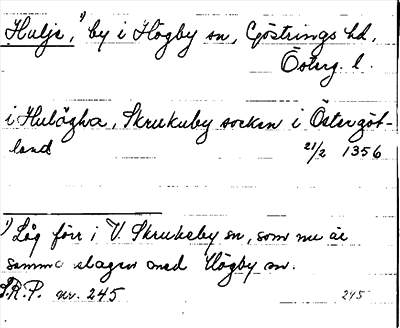 Hulje,¹⁾ by i Högby sn, Göstrings hd,
Österg. l.
i Hulögha, Skrukuby socken i Östergöt-
land 21/2 1356
¹⁾ Låg förr i V. Skrukeby sn, som nu är
samma slagen med Högby sn.
S.R.P. nr. 245 245